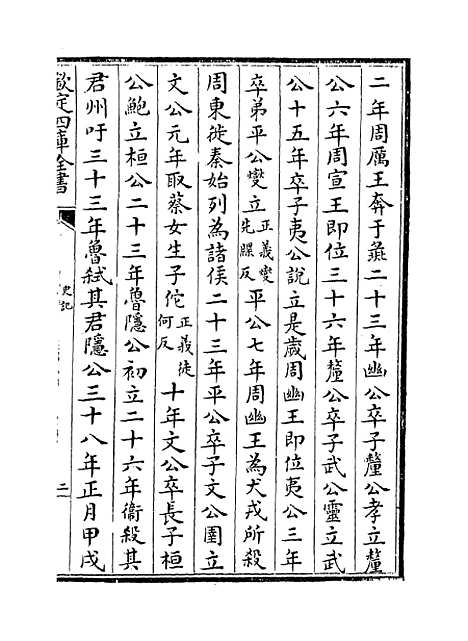 二年周厲王奔于彘二十三年幽公卒子釐公孝立釐
公六年周宣王即位三十六年釐公卒子武公靈立武
公十五年卒子夷公說立是歲周幽王即位夷公三年
卒弟平公燮立正義燮先牒反平公七年周幽王為犬戎所殺
周東徙秦始列為諸侯二十三年平公卒子文公圉立
文公元年取蔡女生子佗正義徒何反十年文公卒長子桓
公鮑立桓公二十三年魯隱公初立二十六年衛殺其
君州吁三十三年魯弒其君隱公三十八年正月甲戌
欽定四庫全書
史記
二